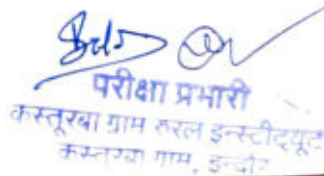 परीक्षा प्रभारी
कस्तूरबा ग्राम रुरल इन्स्टीट्यूट
कस्तूरबा ग्राम, इन्दौर